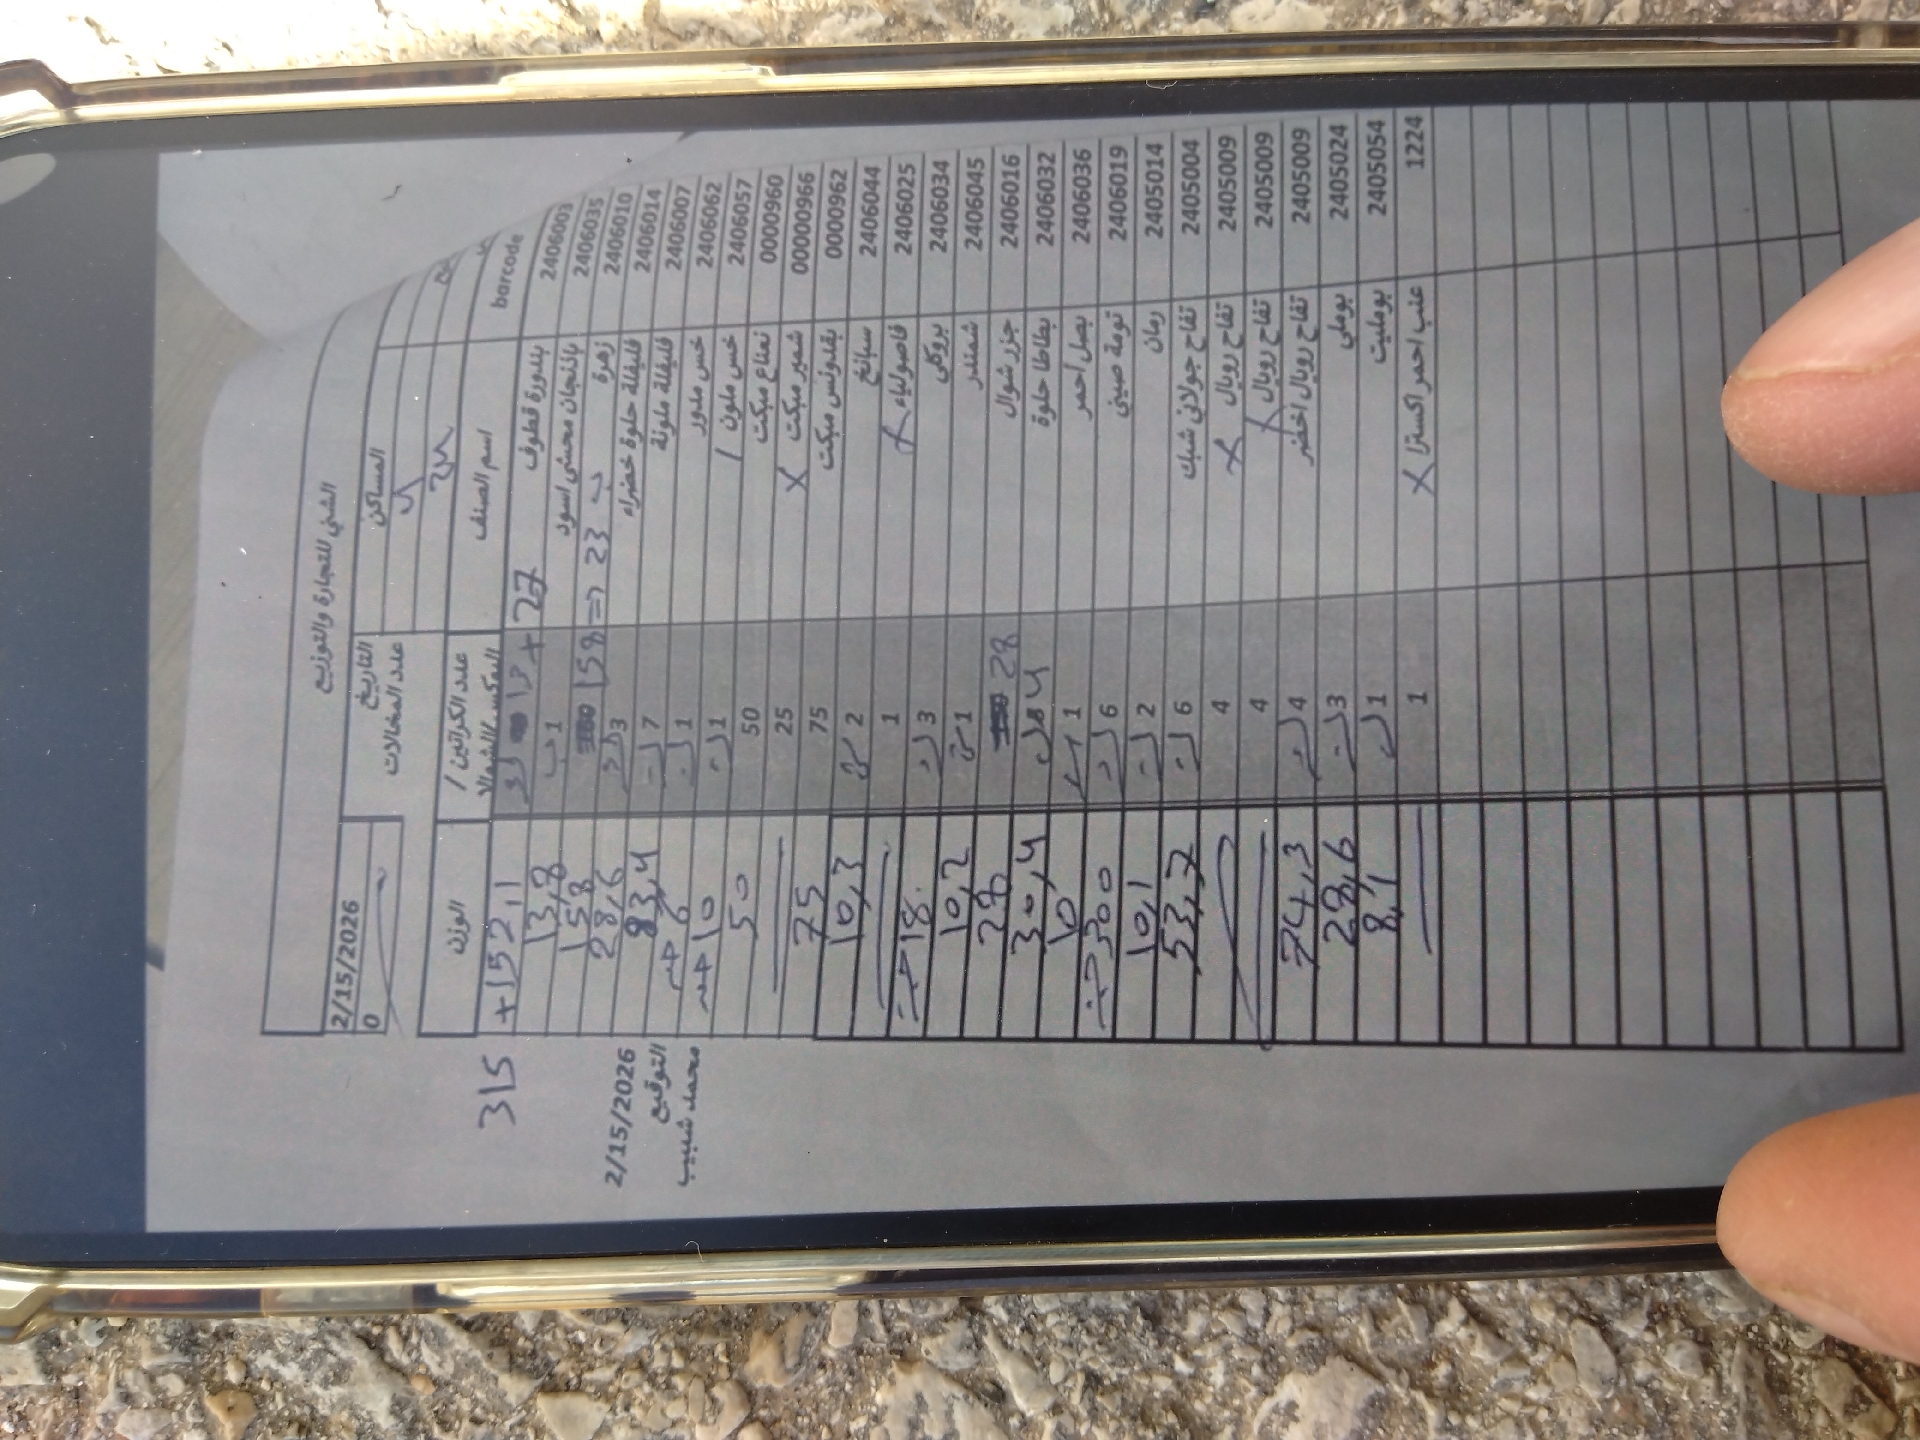 الشني للتجارة والتوزيع
المساكن التاريخ 2/15/2026
عدد المخالات 0
barcode اسم الصنف عدد الكراتين / الوزن
2406003 بندورة قطوف 13 + 27 +152,1 315
2406035 باذنجان محشي اسود 1 13,8
2406010 زهرة 158 => 23 158
2406014 فليفلة حلوة خضراء 3 28,6
2406007 فليفلة ملونة 7 83,4
2406062 خس مدور 1 6
2406057 خس ملون / 1 10
0000960 نعناع مبكت 50 50
00000966 شمير مبكت X 25
0000962 بقدونس مبكت 75 75
2406044 سبانخ 2 10,3
2406025 فاصولياء X 1
2406034 بروكلي 3 18
2406045 شمندر 1 10,2
2406016 جزر شوال 28 28
2406032 بطاطا حلوة 4 30,4
2406036 بصل احمر 1 10
2406019 تومة صيني 6 300
2405014 رمان 2 10,1
2405004 تفاح جولاني شبك 6 53,7
2405009 تفاح رويال X 4
2405009 تفاح رويال X 4
2405009 تفاح رويال اخضر 4 74,3
2405024 بوملي 3 28,6
2405054 بومليت 1 8,1
1224 عنب احمر اكسترا X 1
2/15/2026
التوقيع
محمد شبيب